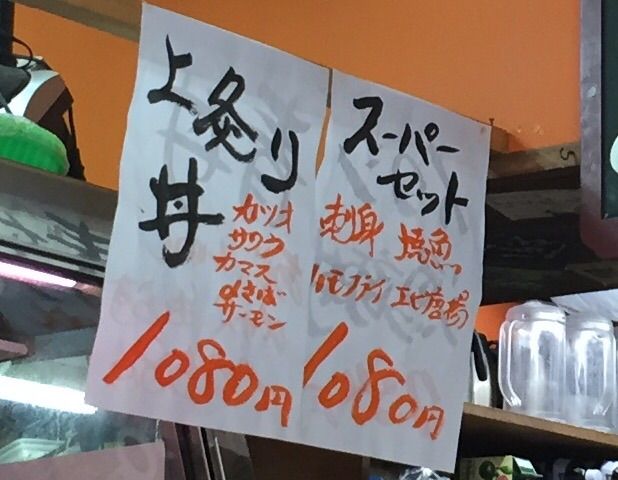 上炙り
丼
カツオ
サワラ
カマス
〆さば
サーモン
1080円
スーパー
セット
刺身 焼魚
ハモフライ エビ唐揚
1080円